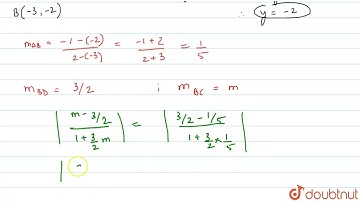 B(-3, -2) ∴ y = -2
m_AB = (-1-(-2))/(2-(-3)) = (-1+2)/(2+3) = 1/5
m_BD = 3/2 ; m_BC = m
|(m - 3/2)/(1 + 3/2 m)| = |(3/2 - 1/5)/(1 + 3/2 × 1/5)|
|
doubtnut